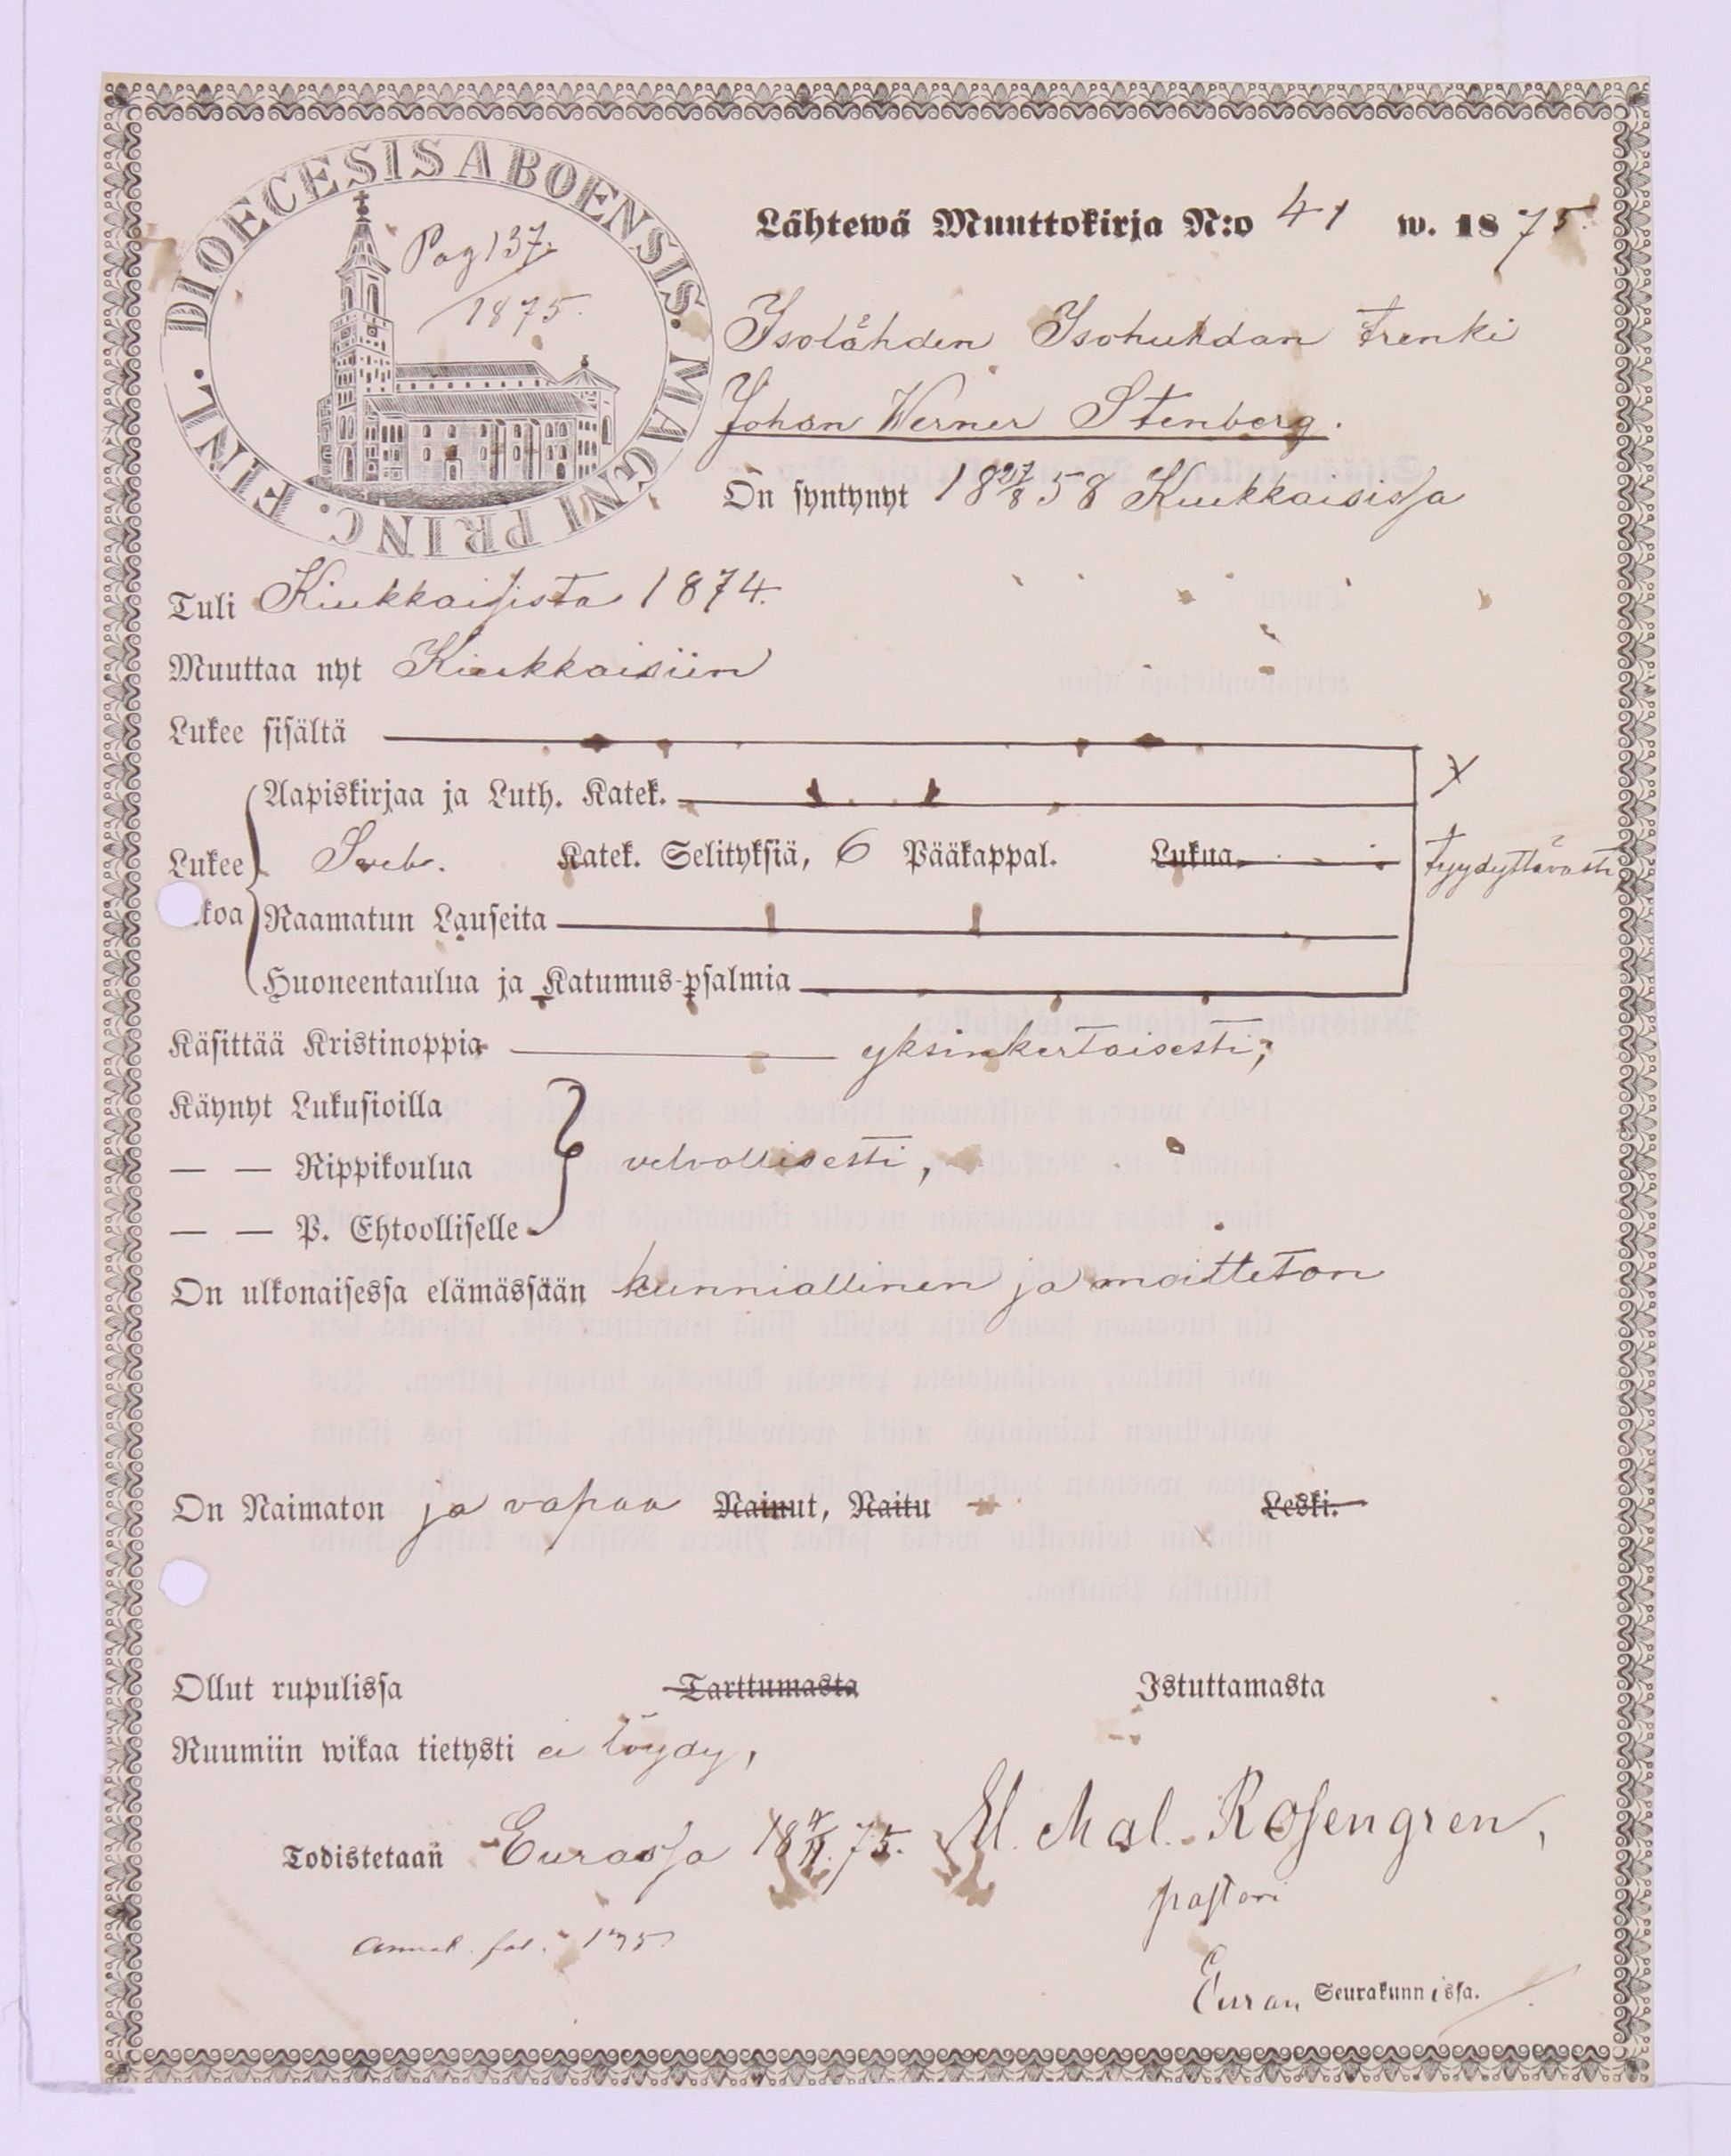 DIOECESIS ABOENSIS. MAGNI PRINC. FINL.
Pag 137.
1875.
Lähtewä Muuttokirja N:o 41 w. 1875.
Isolåhden Isohuhdan trenki
Johan Werner Stenberg.
On syntynyt 18 27/8 58 Kiukkaisissa
Tuli Kiukkaisista 1874.
Muuttaa nyt Kiukkaisiin
Lukee sisältä
Aapiskirjaa ja Luth. Katek.
Lukee Sveb. Katek. Selityksiä, 6 Pääkappal. Lukua tyydyttävästi
koa Raamatun Lauseita
Huoneentaulua ja Katumus-psalmia
Käsittää Kristinoppia yksinkertaisesti,
Käynyt Lukusioilla
— — Rippikoulua velvollisesti,
— — P. Ehtoolliselle
On ulkonaisessa elämässään kunniallinen ja moitteton
On Naimaton ja vapaa Nainut, Naitu Leski.
Ollut rupulissa Tarttumasta Istuttamasta
Ruumiin wikaa tietysti ei löydy,
Todistetaan Eurassa 18 75. Mal. Rosengren,
pastori
Euran Seurakunnissa.